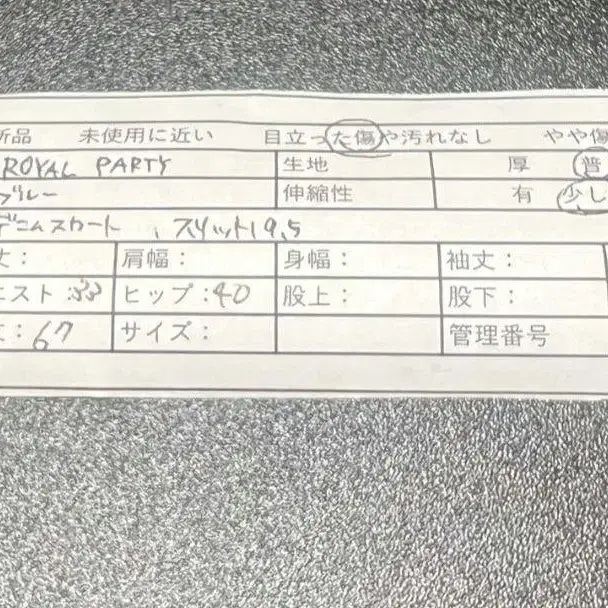 新品 未使用に近い 目立った傷や汚れなし やや傷
ROYAL PARTY 生地 厚 普
グレー 伸縮性 有 少し
デニムスカート 、スリット19.5
丈: 肩幅: 身幅: 袖丈:
エスト:33 ヒップ:40 股上: 股下:
丈:67 サイズ: 管理番号